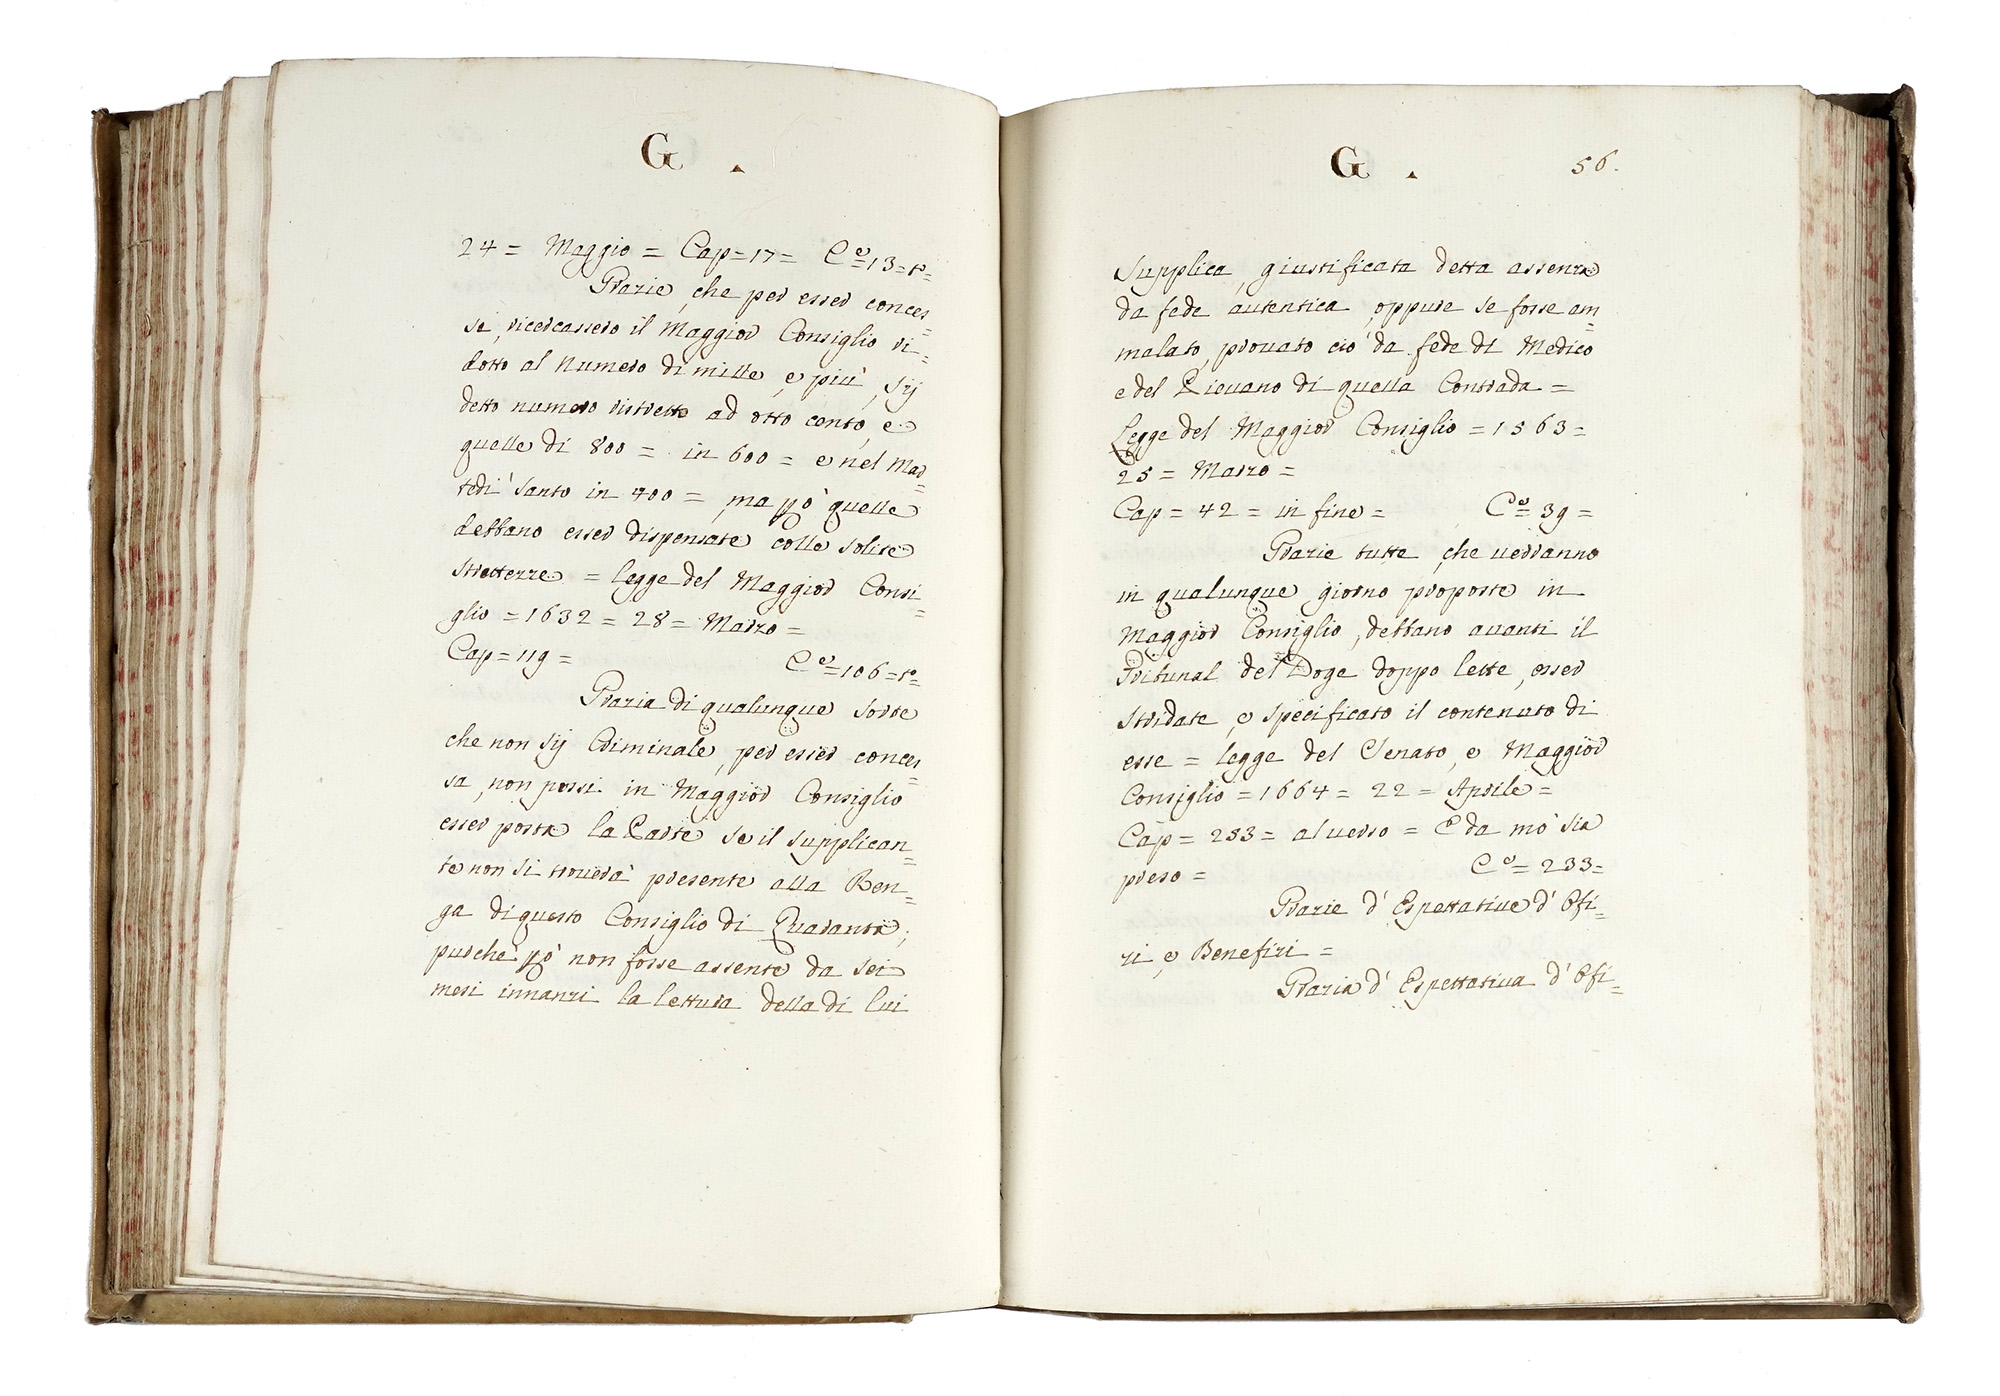 G .
24 = Maggio = Cap = 17 = C.e = 13 = t.o =
Grazie, che per esser conces=
se, ricercassero il Maggior Consiglio ri=
dotto al Numero di mille, e più, sij
detto numero ristretto ad otto cento, e
quelle di 800 = in 600 = e nel Mar=
tedì Santo in 400 = ma pò quelle
debbano esser dispensate colle solite
strettezze = legge del Maggior Consi=
glio = 1632 = 28 = Marzo =
Cap = 119 = C.e = 106 = t.o =
Grazia di qualunque sorte
che non sij Criminale, per esser conces=
sa, non possi in Maggior Consiglio
esser posta la Parte se il supplican=
te non si troverà presente alla Ren=
ga di questo Consiglio di Quaranta,
purchè pò non fosse assente da sei
mesi innanzi la lettura della di lui
G . 56.
Supplica, giustificata detta assenza
da fede autentica, oppure se fosse am=
malato, prouato ciò da fede di Medico
e del Pieuano di quella Contrada =
Legge del Maggior Consiglio = 1563 =
25 = Marzo =
Cap = 42 = in fine = C.e = 39 =
Grazie tutte, che verranno
in qualunque giorno proposte in
Maggior Consiglio, debbano auanti il
Tribunal del Doge doppo lette, esser
stridate, e specificato il contenuto di
esse = legge del Senato, e Maggior
Consiglio = 1664 = 22 = Aprile =
Cap = 233 = al verso = E da mò sia
preso = C.e = 233 =
Grazie d' Espettatiue d' Ofi=
zi, e Benefizi =
Grazia d' Espettatiua d' Ofi=